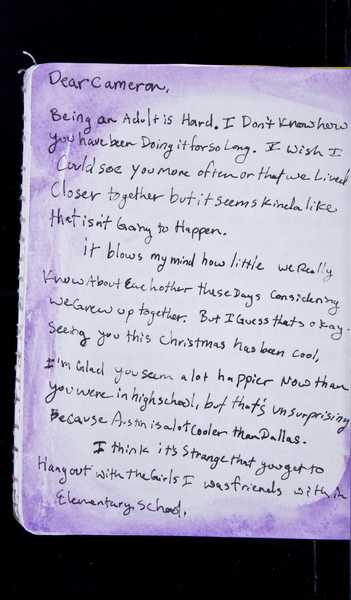 Dear Cameron,
Being an Adult is Hard. I Don't Know how
you have been Doing it for so Long. I wish I
Could see you more often or that we Lived
Closer together but it seems kinda like
that isn't Going to Happen.
it blows my mind how little we Really
Know About Each other these Days Considering
we Grew up together. But I Guess thats okay.
Seeing you this Christmas has been cool,
I'm Glad you seem a lot happier Now than
you were in high school, but that's unsurprising
Because Austin is a lot cooler than Dallas.
I think it's Strange that you get to
Hang out with the Girls I was friends with in
Elementary School.